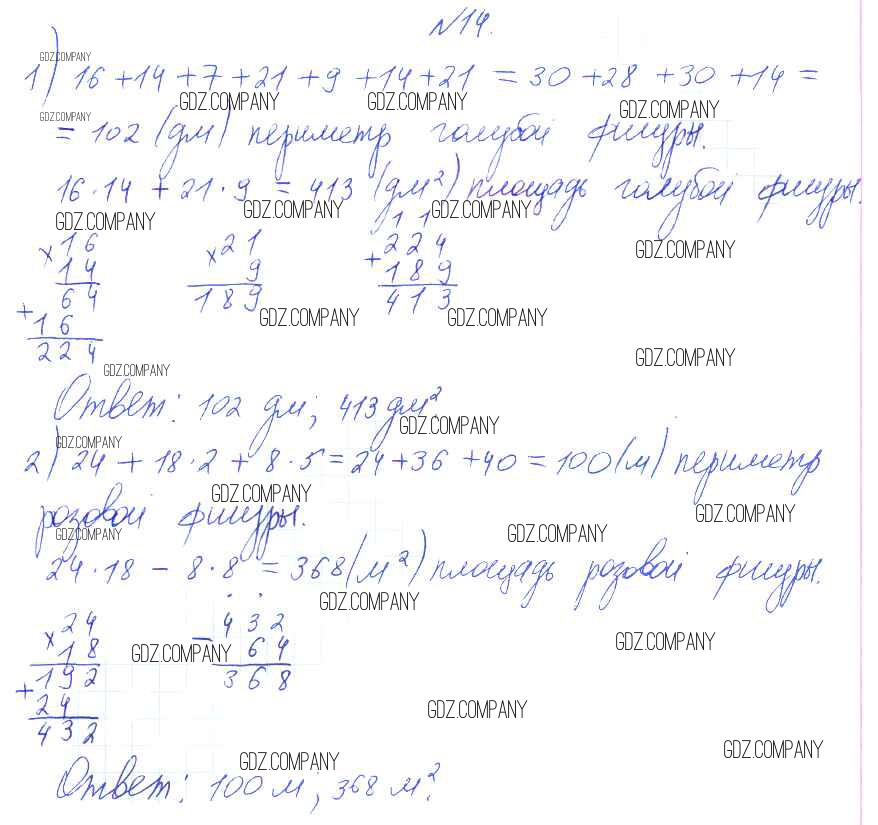 N14.
GDZ.COMPANY
1) 16 + 14 + 7 + 21 + 9 + 14 + 21 = 30 + 28 + 30 + 14 =
GDZ.COMPANY GDZ.COMPANY GDZ.COMPANY
GDZ.COMPANY
= 102 (дм) периметр голубой фигуры.
16 · 14 + 21 · 9 = 413 (дм²) площадь голубой фигуры.
GDZ.COMPANY GDZ.COMPANY GDZ.COMPANY
1 1
× 16 × 21 + 224
14 9 189
64 189 413
+ 16
224
GDZ.COMPANY
GDZ.COMPANY GDZ.COMPANY
GDZ.COMPANY
GDZ.COMPANY
Ответ: 102 дм; 413 дм².
GDZ.COMPANY
GDZ.COMPANY
2) 24 + 18 · 2 + 8 · 5 = 24 + 36 + 40 = 100 (м) периметр
GDZ.COMPANY GDZ.COMPANY
розовой фигуры.
GDZ.COMPANY GDZ.COMPANY
24 · 18 – 8 · 8 = 368 (м²) площадь розовой фигуры.
GDZ.COMPANY
× 24 – 432
18 64
192 368
+ 24
432
GDZ.COMPANY GDZ.COMPANY
GDZ.COMPANY
GDZ.COMPANY GDZ.COMPANY
Ответ: 100 м; 368 м².